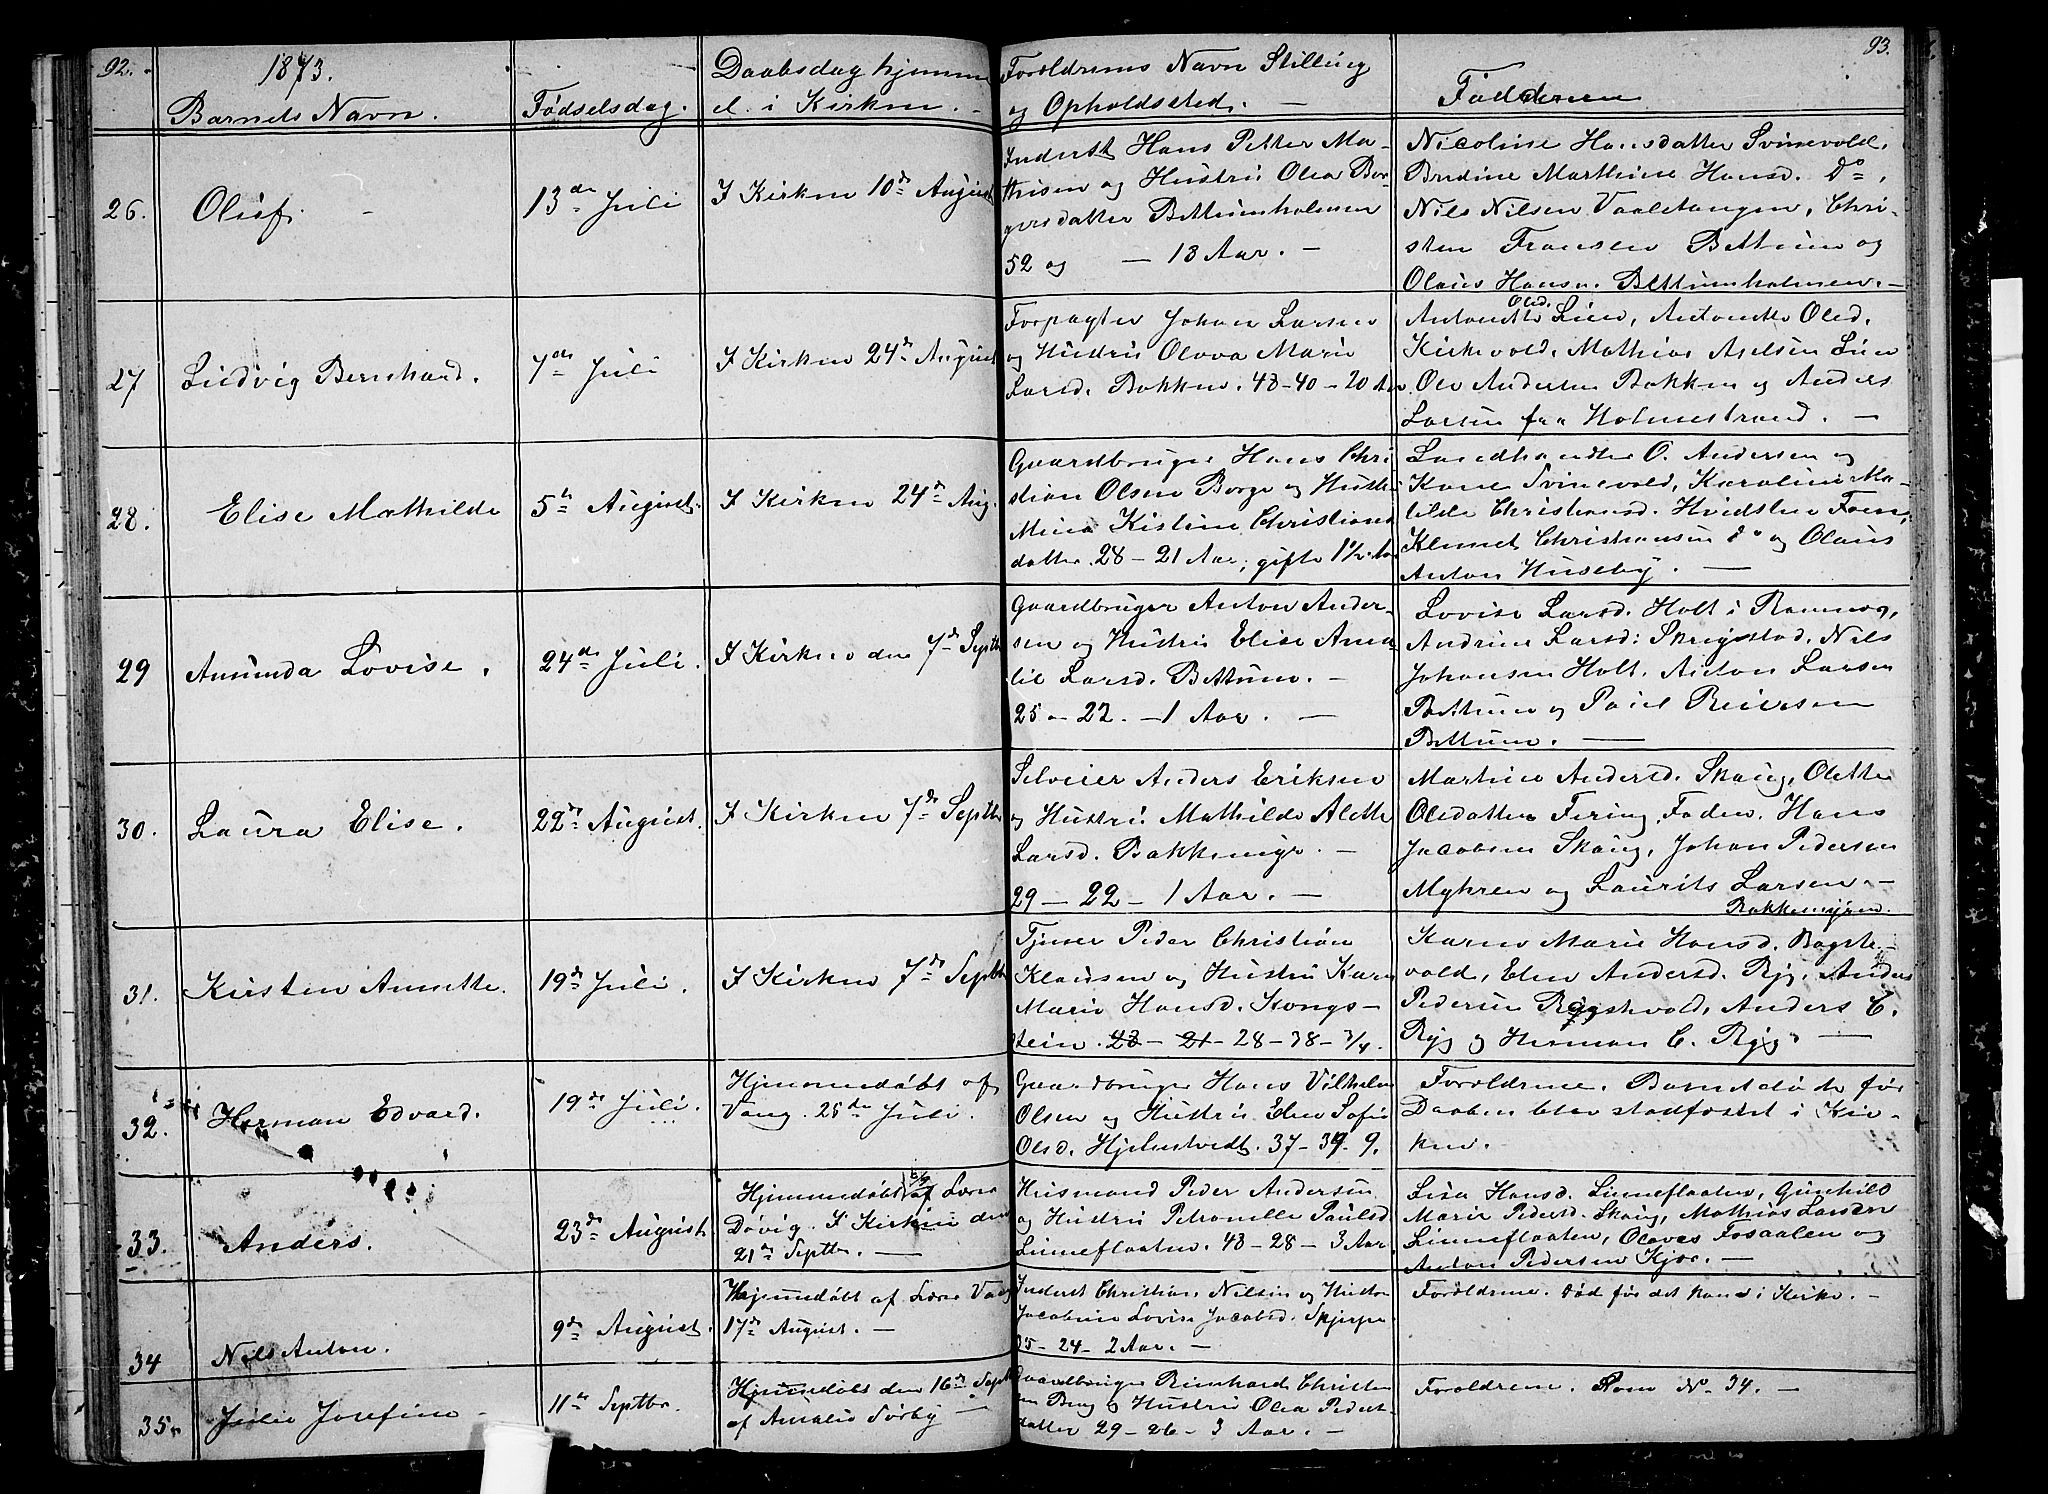 92.
1873.
Barnets Navn.
Fødselsdag.
Daabsdag hjemme
el. i Kirken. -
Foroldrenes Navn Stilling
og Opholdssted. -
Faddrene
93.
26.
Oluf. -
13de Juli
I Kirken 10de August
Inderst Hans Petter Ma-
thisen og Hustru Olea Bor-
gersdatter Bettumholmen
52 og — 13 Aar. -
Nicoline Hansdatter Svinevold.
Bredine Marthine Hansd. do,
Nils Nilsen Vaaletangen, Chri-
sten Fransen Bettum og
Olaus Hansen. Bettumholmen. -
27
Ludvig Bernhard.
7de Juli
I Kirken 24de August
Forpagter Johan Larsen
og Hustru Olava Marie
Larsd. Bakken. 43-40-20 Aar.
Antonette Oled. Lien, Antonette Oled.
Kirkevold. Mathias Axelsen Lien
Ole Andersen Bakken og Anders
Larsen fra Holmestrand. -
28.
Elise Mathilde
5te August.
I Kirken 24de Aug.
Gaardbruger Hans Chri
stian Olsen Borge og Hustru
Mina Kistine Christians
datter. 28 - 21 Aar, gifte 1 1/2 Aar
Landhandler O. Andersen og
Kone Svinevold, Karoline Ma-
tilde Christiansd. Hvidsten Foen,
Klemet Christiansen do og Olaus
Anton Huseby. -
29
Amunda Lovise.
24de Juli.
I Kirken den 7de Septbr
Gaardbruger Anton Ander-
sen og Hustru Elise Ama
lie Larsd. Bettum. -
25 - 22. - 1 Aar. -
Lovise Larsd. Holt i Ramnæs,
Andrine Larsd: Skregstad, Nils
Johansen Holt. Anton Larsen
Bettum og Paul Reiersen
Bettum. -
30.
Laura Elise.
22de August.
I Kirken 7de Septbr
Selveier Anders Eriksen
og Hustru Mathilde Alette
Larsd. Bakkemyr. -
29 - 22 - 1 Aar. -
Martine Andersd. Skaug, Olette
Olsdatter Fering, Faden. Hans
Jacobsen Skaug, Johan Pedersen
Myhren og Laurits Larsen. -
Bakkemyren.
31.
Kirsten Annette.
19de Juli.
I Kirken 7de Septbr
Tjener Peder Christian
Klausen og Hustru Karen
Marie Hansd. Kongs-
tein. 23 - 21 - 28 - 38 - 3/4.
Karen Marie Hansd. Bagste-
vold, Elen Andersd. Ryg, Anders
Pedersen Rygshvold, Anders C.
Ryg og Herman C. Ryg. -
32.
Herman Edvard.
19de Juli.
Hjemmedøbt af
Vang. 25de Juli.
Gaardbruger Hans Vilhelm
Olsen og Hustru Elen Sofie
Olsd. Hjelmtvedt. 37 - 39 - 9.
Foroldrene. Barnet døde før
Daaben blev stadfæstet i Kir-
ken.
33.
Anders.
23de August
Hjemmedøbt 6/9 af Lærer
Døvig. I Kirken den
21de Septbr. -
Husmand Peder Andersen
og Hustru Petronelle Paulsd
Linneflaaten. 43 - 28 - 3 Aar
Lisa Hansd. Linneflaaten, Gunhild
Marie Pedersd. Skaug, Mathias Larsen
Linneflaaten, Olaves Fosaalen og
Anton Pedersen Kjær. -
34
Nils Anton.
9de August.
Hjemmedøbt af Lærer Vang
17de August. -
Inderst Christian Nilsen og Hustru
Jacobine Lovise Jacobsd. Skjerpe
35 - 24 - 2 Aar. -
Foroldrene. Død før det kom i Kirke. -
35.
Julie Josefine -
11te Septbr.
Hjemmedøbt den 16de Septbr
af Amalie Sørby -
Gaardbruger Reinhard Christen
sen Berg og Hustru Olea Peders-
datter 29 - 26 - 3 Aar. -
Foroldrene. Som No 34. -